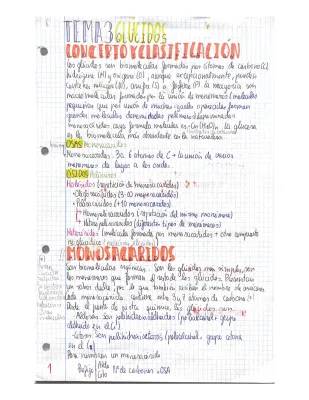 TEMA 3 GLUCIDOS
CONCEPTO Y CLASIFICACIÓN
Los glúcidos son biomoléculas formadas por átomos de carbono (C),
hidrógeno (H) y oxígeno (O), aunque excepcionalmente, pueden
contener nitrógeno (N), azufre (S) o fósforo (P). La mayoría son
macromoléculas formadas por la unión de monómeros (moléculas
pequeñas que por unión de muchas iguales o parecidas forman
grandes moléculas denominadas polímeros) denominados
monosacáridos cuya fórmula molecular es: Cn(H2O)n. La glucosa
es la biomolécula más abundante en la naturaleza.
OSAS Monosacáridos
Monosacáridos: 3 a 6 átomos de C + la unión de varios
monómeros da lugar a los ósidos.
OSIDOS Polímeros
Holósidos (repetición de monosacáridos)
Oligosacáridos (3-10 monosacáridos)
Polisacáridos (+10 monosacáridos)
Homopolisacáridos (repetición del mismo monómero)
Heteropolisacáridos (diferentes tipos de monómeros)
Heterósidos (molécula formada por monosacáridos + otro compuesto
no glucídico
MONOSACÁRIDOS
Son biomoléculas orgánicas. Son los glúcidos más simples, son
los monómeros que forman el resto de los glúcidos. Presentan
un sabor dulce, por lo que también reciben el nombre de azúcares.
Cada monosacárido contiene entre 3 y 7 átomos de carbono (*)
Desde el punto de vista químico, los glúcidos son:
Aldosas: son polihidroxialdehídos (polialcohol + grupo
aldehído en el C1)
Cetosas: son polihidroxicetonas (polialcohol + grupo cetona
en el C2)
Para nombrar un monosacárido
Prefijo Aldo Nº de carbonos + OSA
Ceto
1